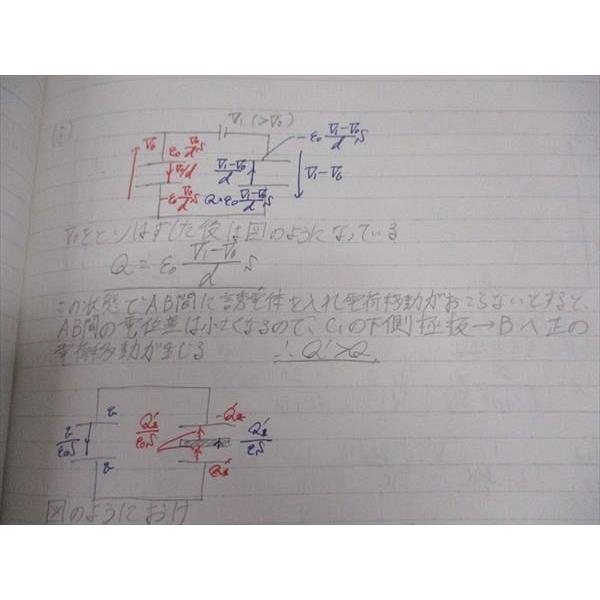 V₁ (>V₀)
V₀ ε₀ V₀/d S
-ε₀ (V₁-V₀)/d S
V₀/d (V₁-V₀)/d V₁-V₀
-ε₀ V₀/d S Q=ε₀ (V₁-V₀)/d S
V₀をとりはずした後は図のようになっている
Q = ε₀ (V₁-V₀)/d S
この状態でAB間に誘電体を入れ電荷移動がおこらないとすると、
AB間の電位差は小さくなるので、C₁の下側極板→Bへ正の
電荷移動が生じる ∴ Q'>Q
図のようにおけ